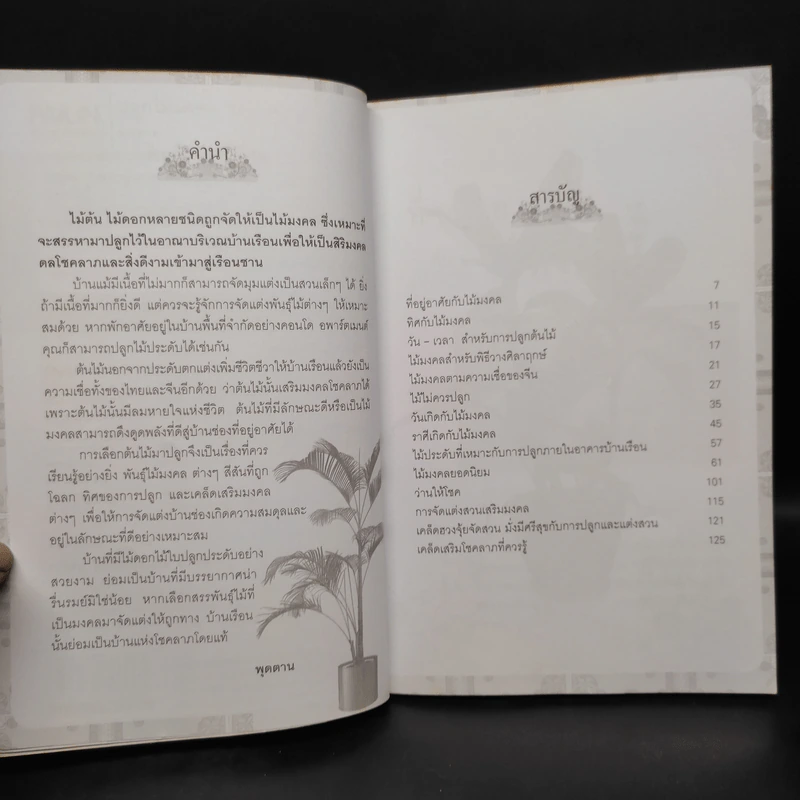 คำนำ
ไม้ต้น ไม้ดอกหลายชนิดถูกจัดให้เป็นไม้มงคล ซึ่งเหมาะที่
จะสรรหามาปลูกไว้ในอาณาบริเวณบ้านเรือนเพื่อให้เป็นสิริมงคล
ดลโชคลาภและสิ่งดีงามเข้ามาสู่เรือนชาน
บ้านแม้มีเนื้อที่ไม่มากก็สามารถจัดมุมแต่งเป็นสวนเล็กๆ ได้ ยิ่ง
ถ้ามีเนื้อที่มากก็ยิ่งดี แต่ควรจะรู้จักการจัดแต่งพันธุ์ไม้ต่างๆ ให้เหมาะ
สมด้วย หากพักอาศัยอยู่ในบ้านพื้นที่จำกัดอย่างคอนโด อพาร์ตเมนต์
คุณก็สามารถปลูกไม้ประดับได้เช่นกัน
ต้นไม้นอกจากประดับตกแต่งเพิ่มชีวิตชีวาให้บ้านเรือนแล้วยังเป็น
ความเชื่อทั้งของไทยและจีนอีกด้วย ว่าต้นไม้นั้นเสริมมงคลโชคลาภได้
เพราะต้นไม้นั้นมีลมหายใจแห่งชีวิต ต้นไม้ที่มีลักษณะดีหรือเป็นไม้
มงคลสามารถดึงดูดพลังที่ดีสู่บ้านช่องที่อยู่อาศัยได้
การเลือกต้นไม้มาปลูกจึงเป็นเรื่องที่ควร
เรียนรู้อย่างยิ่ง พันธุ์ไม้มงคล ต่างๆ สีสันที่ถูก
โฉลก ทิศของการปลูก และเคล็ดเสริมมงคล
ต่างๆ เพื่อให้การจัดแต่งบ้านช่องเกิดความสมดุลและ
อยู่ในลักษณะที่ดีอย่างเหมาะสม
บ้านที่มีไม้ดอกไม้ใบปลูกประดับอย่าง
สวยงาม ย่อมเป็นบ้านที่มีบรรยากาศน่า
รื่นรมย์มิใช่น้อย หากเลือกสรรพันธุ์ไม้ที่
เป็นมงคลมาจัดแต่งให้ถูกทาง บ้านเรือน
นั้นย่อมเป็นบ้านแห่งโชคลาภโดยแท้
พุดตาน
สารบัญ
ที่อยู่อาศัยกับไม้มงคล 7
ทิศกับไม้มงคล 11
วัน – เวลา สำหรับการปลูกต้นไม้ 15
ไม้มงคลสำหรับพิธีวางศิลาฤกษ์ 17
ไม้มงคลตามความเชื่อของจีน 21
ไม้ไม่ควรปลูก 27
วันเกิดกับไม้มงคล 35
ราศีเกิดกับไม้มงคล 45
ไม้ประดับที่เหมาะกับการปลูกภายในอาคารบ้านเรือน 57
ไม้มงคลยอดนิยม 61
ว่านให้โชค 101
การจัดแต่งสวนเสริมมงคล 115
เคล็ดฮวงจุ้ยจัดสวน มั่งมีศรีสุขกับการปลูกและแต่งสวน 121
เคล็ดเสริมโชคลาภที่ควรรู้ 125